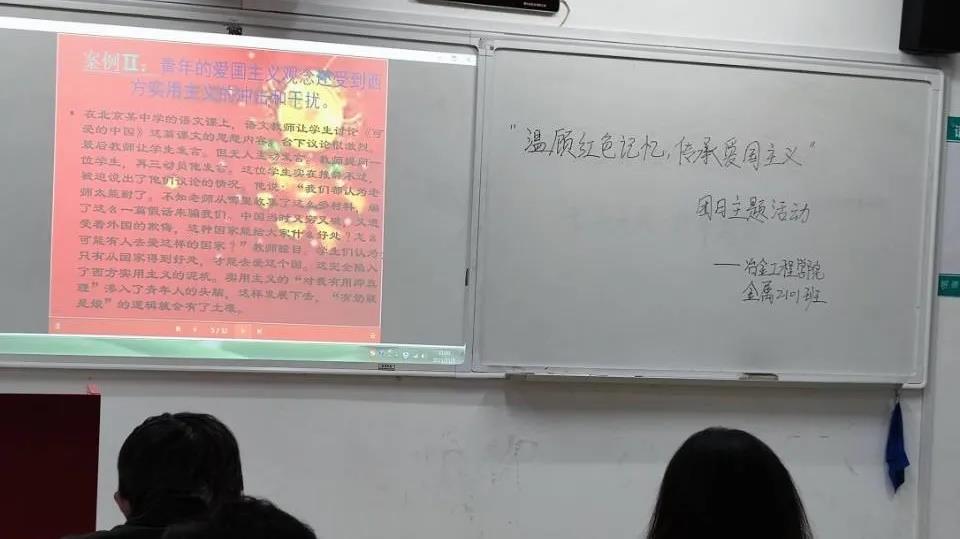 案例II：青年的爱国主义观念还受到西
方实用主义的冲击和干扰。
• 在北京某中学的语文课上，语文教师让学生讨论《可
爱的中国》这篇课文的思想内容。台下议论很激烈，
最后教师让学生发言。但无人主动发言。教师提问一
位学生，再三动员他发言。这位学生实在推辞不过，
被迫说出了他们议论的情况。他说：“我们都认为老
师太能耐了。不知老师从哪里收集了这么多材料，编
了这么一篇假话来骗我们。中国当时又穷又破，又遭
受着外国的欺侮，这种国家能给大家什么好处？怎么
可能有人去爱这样的国家？”教师瞠目。学生们认为
只有从国家得到好处，才能去爱这个国。这完全陷入
了西方实用主义的泥坑。实用主义的“对我有用即真
理”渗入了青年人的头脑，这样发展下去，“有奶就
是娘”的逻辑就会有了土壤。
5 / 32
“温顾红色记忆，传承爱国主义”
团日主题活动
——冶金工程学院
金属2101班